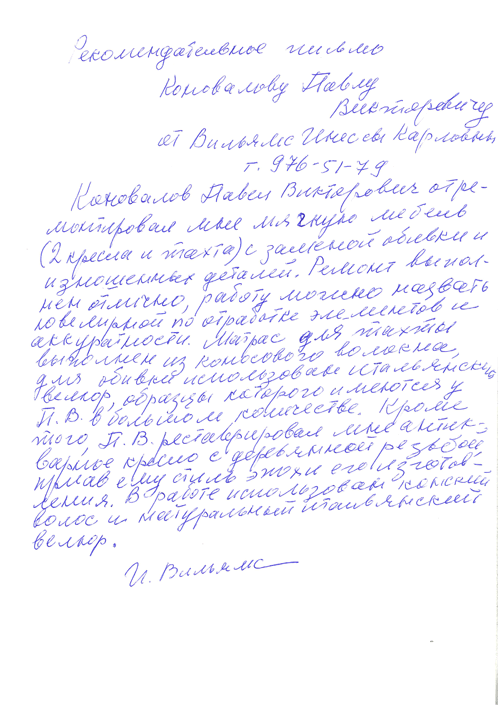 Рекомендательное письмо
Коновалову Павлу
Викторовичу
от Вильямс Инессы Карловны
т. 976-51-79
Коновалов Павел Викторович отре-
монтировал мне мягкую мебель
(2 кресла и тахта) с заменой обивки и
изношенных деталей. Ремонт выпол-
нен отлично, работу можно назвать
ювелирной по отработке элементов и
аккуратности. Матрас для тахты
выполнен из кокосового волокна,
для обивки использован итальянский
велюр, образцы которого имеются у
П. В. в большом количестве. Кроме
того, П. В. реставрировал мне антик-
варное кресло с деревянной резьбой,
придав ему стиль эпохи его изготов-
ления. В работе использован конский
волос и натуральный итальянский
велюр.
И. Вильямс